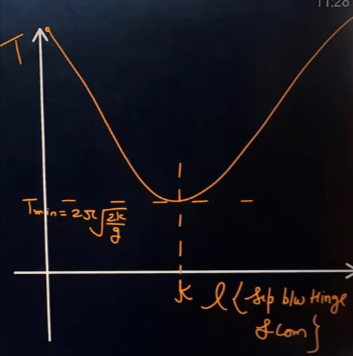 11:28
T
Tmin = 2π√(2K/g)
K l {Sep b/w Hinge
& COM}